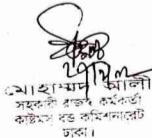 মোহাম্মদ আলী
সহকারী রাজস্ব কর্মকর্তা
কাষ্টমস বন্ড কমিশনারেট
ঢাকা।